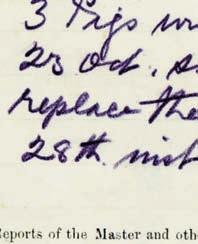 3 Pigs
23 Oct. 
replace the
28th inst
Reports of the Master and oth